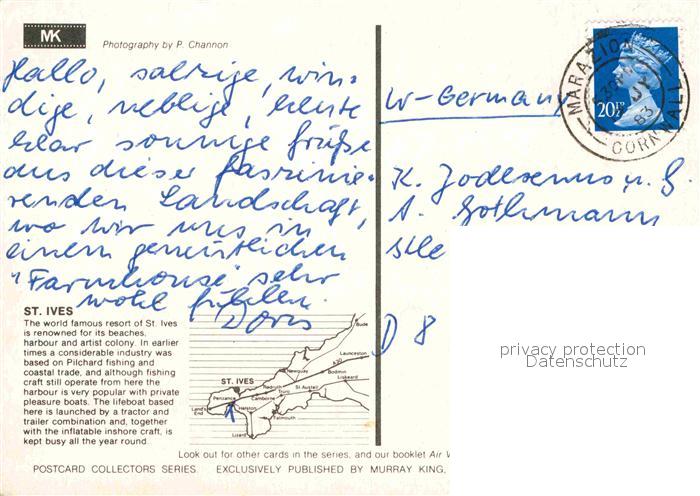 MK
Photography by P. Channon
Hallo, salzige, win-
dige, neblige, heute
klar sonnige Grüße
aus dieser faszinie-
renden Landschaft,
wo wir uns in
einem gemütlichen
"Farmhouse" sehr
wohl fühlen.
Doris
W-Germany
K. u. G.
A. Gothmann
D 8
MARAZION
CORNWALL
83
20½P
ST. IVES
The world famous resort of St. Ives
is renowned for its beaches,
harbour and artist colony. In earlier
times a considerable industry was
based on Pilchard fishing and
coastal trade, and although fishing
craft still operate from here the
harbour is very popular with private
pleasure boats. The lifeboat based
here is launched by a tractor and
trailer combination and, together
with the inflatable inshore craft, is
kept busy all the year round.
Bude
Launceston
A30
Newquay
Bodmin
Liskeard
ST. IVES
Redruth
St. Austell
Truro
Penzance
Camborne
Land's
End
Helston
Falmouth
Lizard
privacy protection
Datenschutz
Look out for other cards in the series, and our booklet Air
POSTCARD COLLECTORS SERIES. EXCLUSIVELY PUBLISHED BY MURRAY KING,